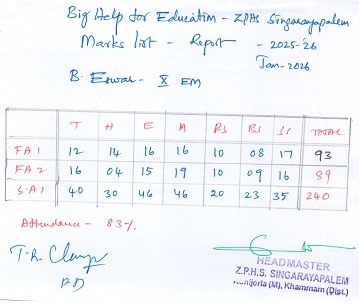 Big Help for Education - ZPHS Singarayapalem
Marks list - Report - 2025-26
Jan-2026
B. Eswar - X EM
T H E M PS BS SS TOTAL
FA 1 12 14 16 16 10 08 17 93
FA 2 16 04 15 19 10 09 16 89
S.A1 40 30 46 46 20 23 35 240
Attendance - 83%
HEADMASTER
Z.P.H.S. SINGARAYAPALEM
(M), Khammam (Dist.)